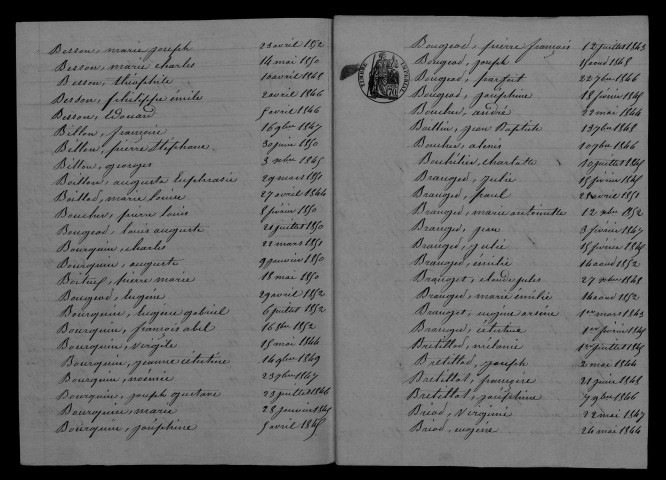 Besson, marie joseph 23 avril 1852
Besson, marie charles 14 mai 1850
Besson, théophile 10 avril 1848
Besson, philippe émile 2 avril 1846
Besson, Edouard 5 avril 1846
Billon, françois 16 9bre 1847
Billon, pierre Stéphane 30 juin 1850
Billon, georges 3 xbre 1845
Boillon, auguste Euphrasie 29 mars 1850
Boillod, marie louise 27 avril 1844
Boucher, pierre louis 8 février 1850
Bougeod, louis auguste 21 juillet 1850
Bourquin, charles 22 mars 1851
Bourquin, auguste 9 janvier 1850
pierre marie 18 mai 1850
Bougeod, Eugène 29 avril 1852
Bourquin, Eugène gabriel 6 juillet 1852
Bourquin, françois abel 16 1852
Bourquin, Virgile 15 mai 1844
Bourquin, jeanne célestine 14 9bre 1849
Bourquin, noémie 23 9bre 1847
Bourquin, joseph gustave 23 juillet 1846
Bourquin, marie 28 janvier 1845
Bourquin, joséphine 5 avril 1845
Bougeod, pierre françois 12 juillet 1843
Bougeod, joseph 1848
Bougeod, parfait 22 7bre 1846
Bougeod, joséphine 18 février 1845
Boucher, andré 22 mai 1844
jean Baptiste 13 7bre 1848
Boucher, alexis 10 7bre 1846
charlotte 10 juillet 1845
Branged, julie 15 février 1845
Branged, paul 21 avril 1851
Branged, marie antoinette 12 xbre 1852
Branged, jean 3 février 1847
Branged, julie 15 février 1845
Branged, émilie 14 aout 1852
Branget, claude jules 27 1848
Branged, marie émilie 14 aout 1852
Branget, eugène arsène 1er mars 1843
Branged, célestine 1er février 1845
Bretillod, mélanie 1er juillet 1845
Bretillod, joseph 2 mai 1844
Bretillot, françoise 21 juin 1848
Bretillot, joséphine 7 9bre 1846
Briod, Virginie 22 mai 1847
Briod, eugène 24 mai 1844